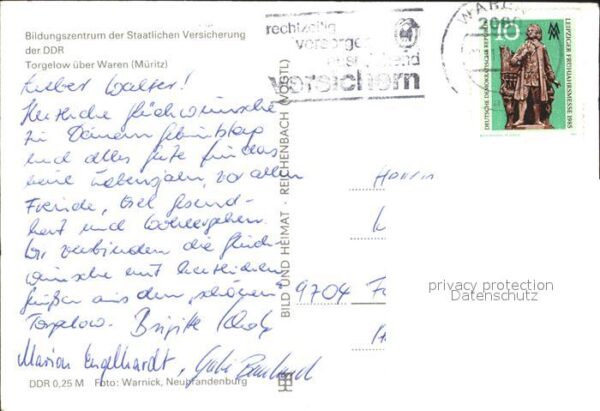 Bildungszentrum der Staatlichen Versicherung
der DDR
Torgelow über Waren (Müritz)
Lieber Walter!
Herzliche Glückwünsche
zu Deinem Geburtstag
und alles Gute für das
neue Lebensjahr, vor allem
Freude, viel Gesund-
heit und Wohlergehen.
Wir verbinden die Glück-
wünsche mit herzlichen
Grüßen aus dem „schönen“
Torgelow. Brigitte
Marion Engelhardt, Gabi
DDR 0,25 M Foto: Warnick, Neubrandenburg
BILD UND HEIMAT · REICHENBACH (VOGTL)
rechtzeitig
vorsorgen
versichern
WAREN
2060
10
DEUTSCHE DEMOKRATISCHE REPUBLIK
LEIPZIGER FRÜHJAHRSMESSE 1985
Herrn
9704
privacy protection
Datenschutz